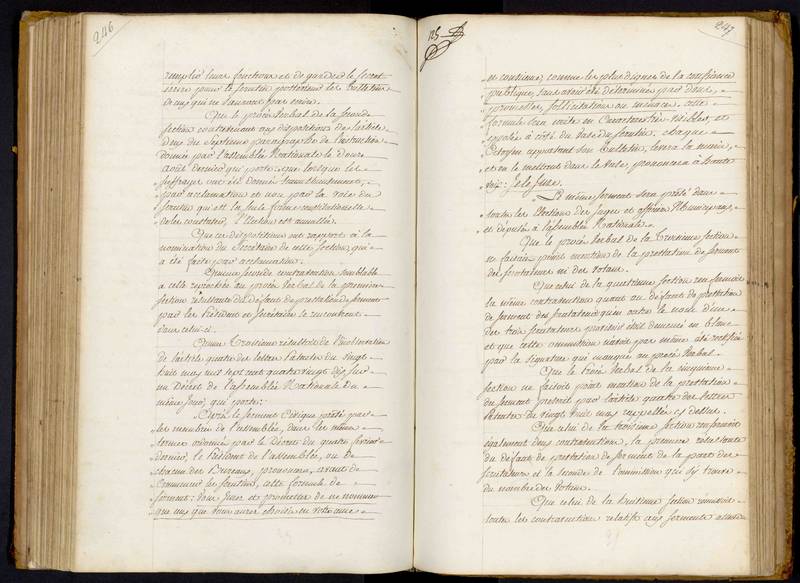 246
remplir leurs fonctions et de garder le secret
serment pour le scrutin porteront les bulletins
de ceux qui ne sauront pas écrire.
Que le procès verbal de la seconde
section contrevenant aux dispositions de l'article
deux du septième paragraphe de l'instruction
donnée par l'assemblée Nationale le douze
août dernier qui porte, que lorsque les
suffrages ont été donnés tumultueusement,
par acclamation et non par la voie du
scrutin qui est la seule forme constitutionnelle
de les constater, l'Election est annullée.
Que ces dispositions ont rapport à la
nomination du Secrétaire de cette section, qui
a été faite par acclamation.
Qu'une seconde contravention semblable
à celle reprochée au procès verbal de la première
section résultante du défaut de prestation de serment
par les Présidents et secrétaire se rencontrent
dans celui-ci.
Qu'une troisième résultoit de l'inobservation
de l'article quatre des lettres patentes du vingt
huit may mil sept cent quatre vingt dix sur
un Décret de l'assemblée Nationale du
même jour, qui porte:
" Après le serment Civique prêté par
" les membres de l'assemblée, dans les mêmes
" termes ordonnés par le Décret du quatre février
" dernier, le Président de l'assemblée, ou de
" chacun des Bureaux, prononcera, avant de
" commencer les scrutins, cette formule de
" serment: Vous jurez et promettez de ne nommer
" que ceux que vous aurez choisis en votre ame
125
247
" et conscience, comme les plus dignes de la confiance
" publique, sans avoir été déterminés par dons,
" promesses, sollicitations ou menaces. cette
" formule sera écrite en Caractères visibles, et
" exposée à côté du vase du scrutin. chaque
" Citoyen apportant son Bulletin, levera la main,
" et en le mettant dans le vase, prononcera à haute
" voix: Je le jure.
" Le même serment sera prêté dans
" toutes les Elections des juges et officiers Municipaux,
" et députés à l'assemblée Nationale.
Que le procès verbal de la Troisième section
ne faisoit point mention de la prestation de serment
des scrutateurs ni des votans.
Que celui de la quatrième section renfermoit
la même contravention quant au défaut de prestation
de serment des scrutateurs qu'en outre le nom d'un
des trois scrutateurs paroissoit étoit demeuré en blanc
et que cette ommission n'étoit pas même été rectifiée
par la signature qui manque au procès verbal.
Que le procès verbal de la cinquième
section ne faisoit point mention de la prestation
du serment prescrit par l'article quatre des lettres
Patentes du vingt huit may rappellées cy dessus.
Que celui de la sixième section renfermoit
également deux contraventions, la première résultante
du défaut de prestation de serment de la part des
scrutateurs et la seconde de l'ommission qui s'y trouve
du nombre des votans.
Que celui de la huitième section réunissoit
toutes les contraventions relatives aux serments